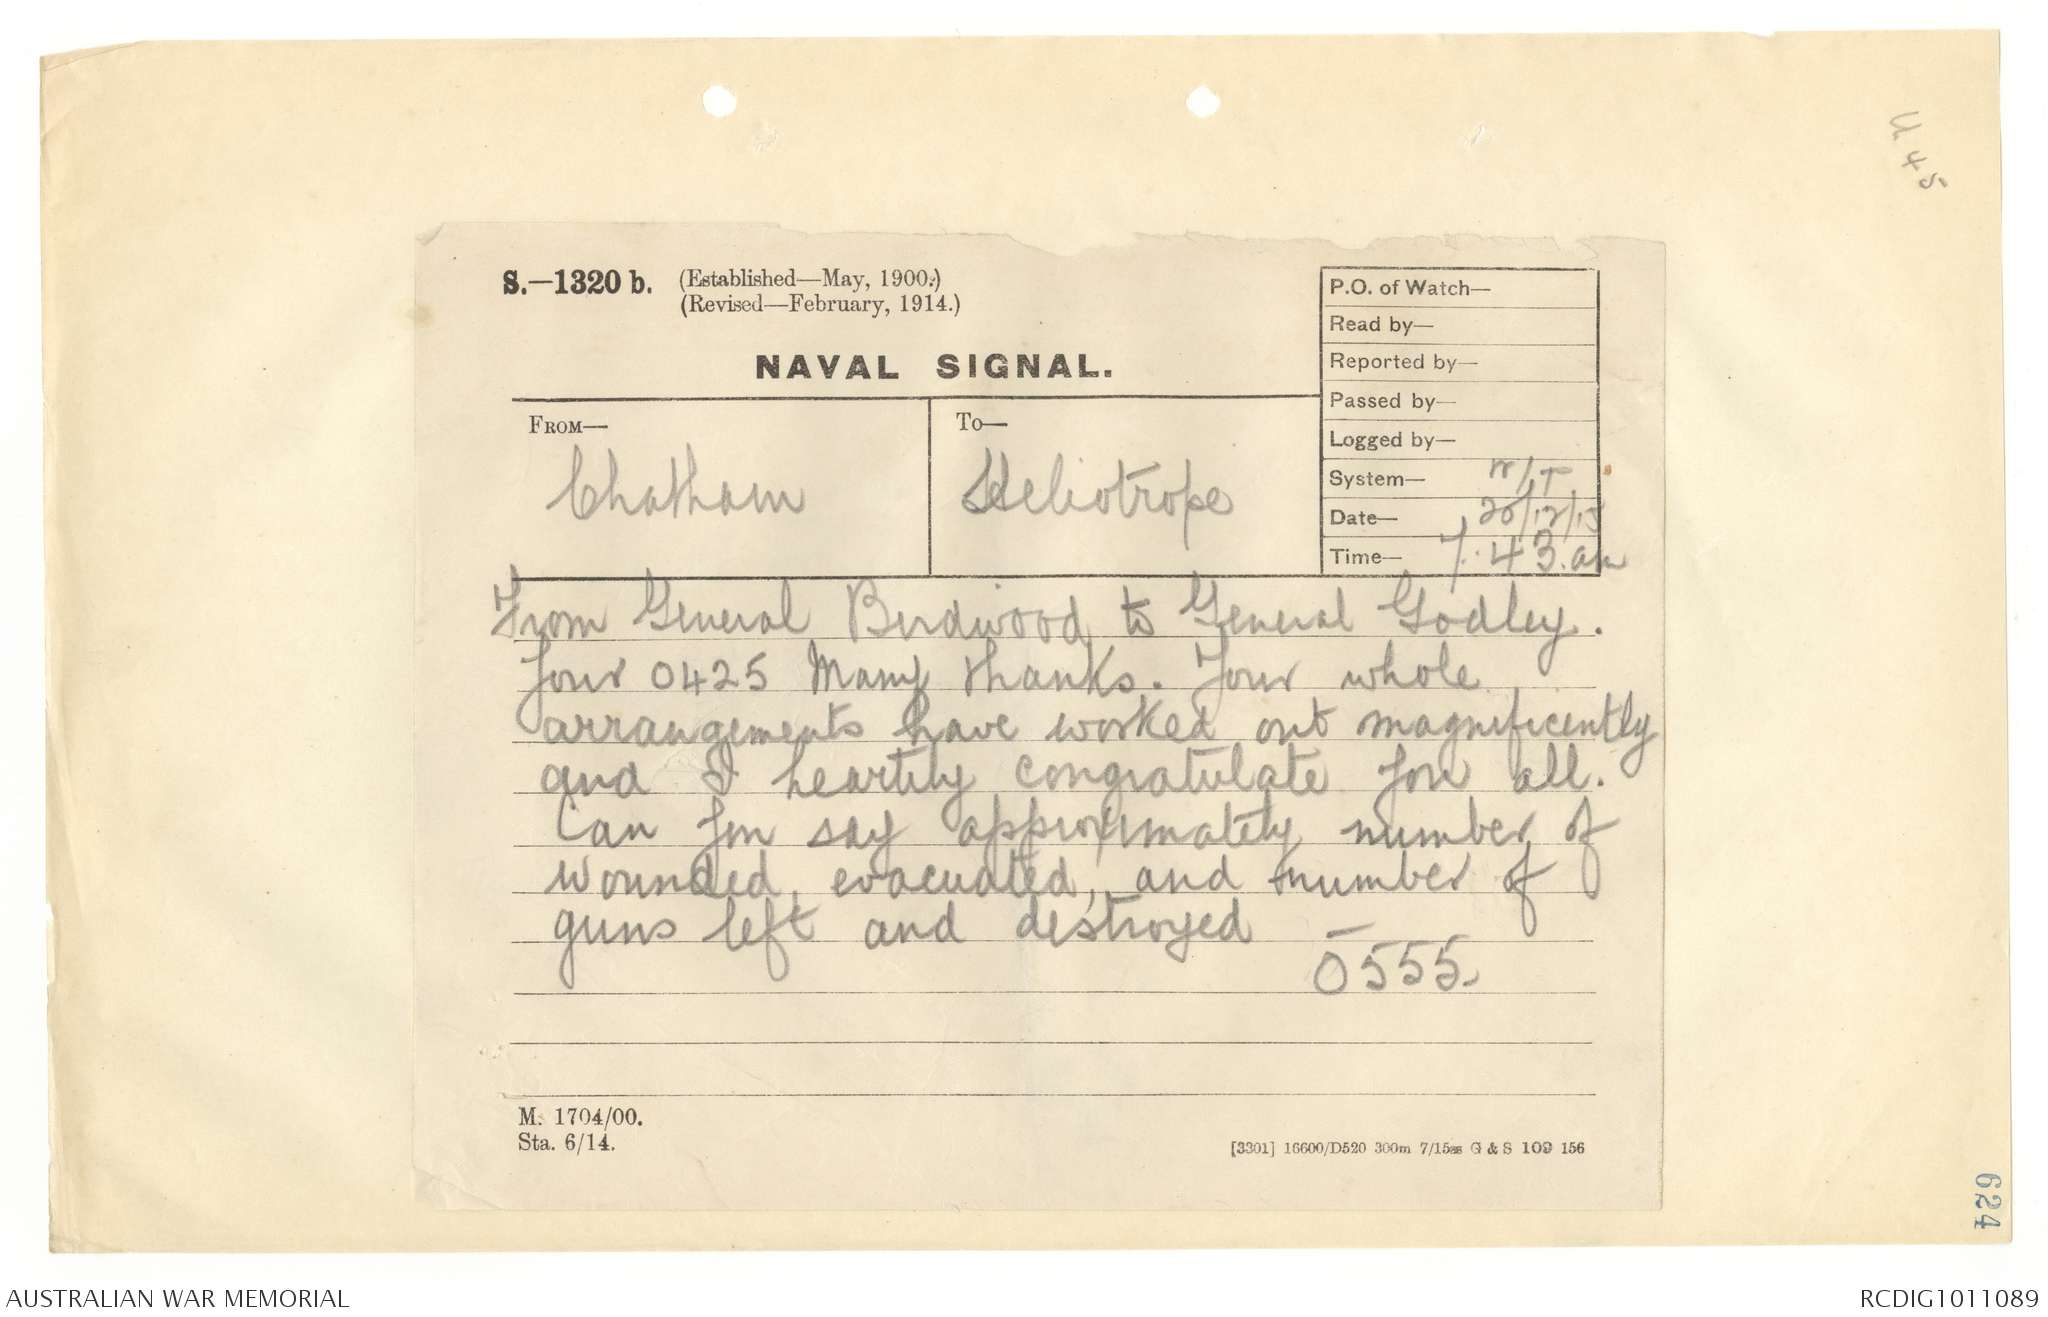 U. 45
S.—1320 b. (Established—May, 1900.)
(Revised—February, 1914.)
NAVAL SIGNAL.
P.O. of Watch—
Read by—
Reported by—
Passed by—
Logged by—
System— W/T
Date— 20/12/15
Time— 7.43.am
FROM— Chatham
To— Heliotrope
From General Birdwood to General Godley.
Your 0425 Many thanks. Your whole
arrangements have worked out magnificently
and I heartily congratulate you all.
Can you say approximately number of
wounded, evacuated, and number of
guns left and destroyed
0555.
M. 1704/00.
Sta. 6/14.
[3301] 16600/D520 300m 7/15 G & S 109 156
624
AUSTRALIAN WAR MEMORIAL
RCDIG1011089